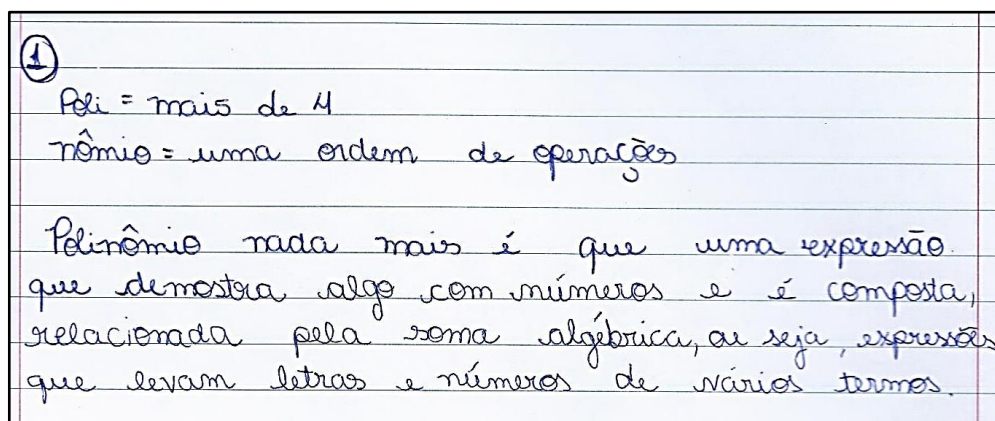 1
Poli = mais de 4
nômio = uma ordem de operações
Polinômio nada mais é que uma expressão
que demostra algo com números e é composta,
relacionada pela soma algébrica, ou seja, expressões
que levam letras e números de vários termos.